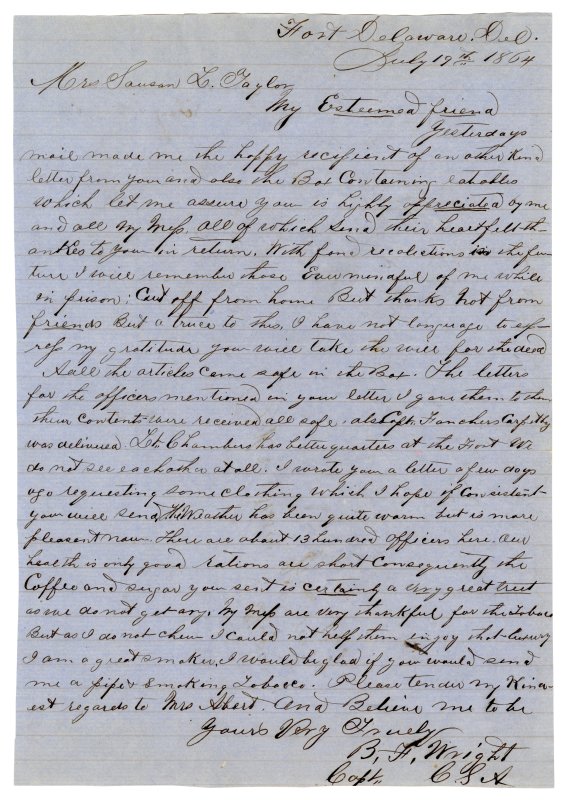 Fort Delaware, Del.
July 19th 1864
Mrs Sausan L. Taylor
My Esteemed friend
Yesterdays
mail made me the happy recipient of another Kind
letter from you and also the Box Containing eatables
which let me assure you is highly appreciated by me
and all my Mess, all of which send their heartfelt th-
ankes to you in return. With fond recolections in the fu-
ture I will remember those Ever mindful of me while
in prison; Cut off from home But thanks not from
friends But a truce to this, I have not language to exp-
ress my gratitude you will take the will for the deed
all the articles came safe in the Box. The letters
for the officers mentioned in your letter I gave them to them
their contents were received all safe, also Capt. Fanchers
was delivered. Lt. Chambers has better quarters at the Fort We
do not see eachother at all. I wrote you a letter a few days
ago requesting some clothing which I hope if Consistent
you will send, the Weather has been quite warm but is more
pleasant now. There are about 13 hundred officers here. our
health is only good rations are short Consequently the
Coffee and sugar you sent is certainly a very great treet
as we do not get any. My Mess are very thankful for the Tobacco
But as I do not chew I could not help them enjoy that luxury
I am a great smoker, I would be glad if you would send
me a pipe & Smoking Tobacco. Please tender my Kind-
est regards to Mrs Abert And Believe me to be
Yours Very Truely
B. F. Wright
Capt. C S A